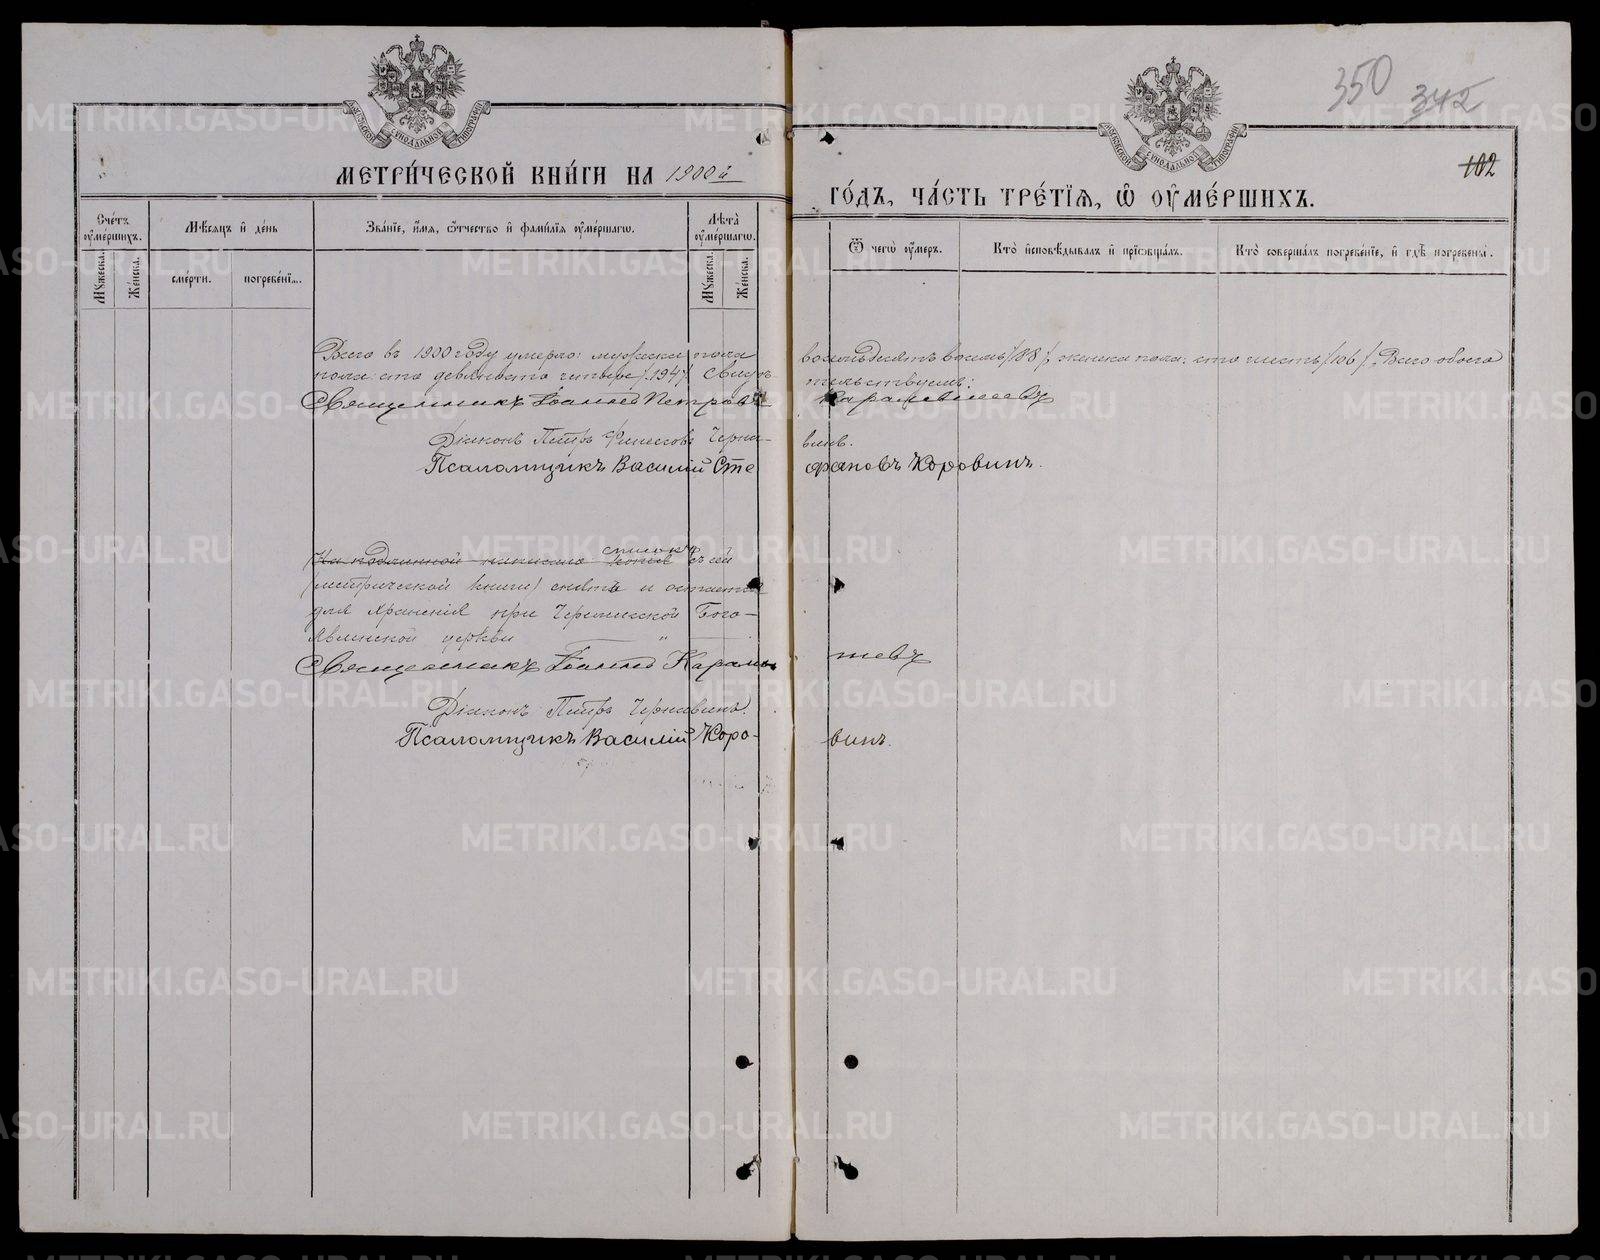 350 342
102
МЕТРИ́ЧЕСКОЙ КНИ́ГИ НА 1900й
ГО́ДЪ, ЧА́СТЬ ТРЕ́ТЇѦ, Ѡ҆ ОУ҆МЕ́РШИХЪ.
Сче́тъ оу҆ме́ршихъ.
Мѣ́сѧцъ и҆ де́нь
Зва́нїе, и҆́мѧ, ѻ҆́тчество и҆ фами́лїѧ оу҆ме́ршагѡ.
Лѣ́та оу҆ме́ршагѡ.
Ѿ чегѡ̀ оу҆́меръ.
Кто̀ и҆сповѣ́дывалъ и҆ прїѡбща́лъ.
Кто̀ соверша́лъ погребе́нїе, и҆ гдѣ̀ погребены̀.
Мꙋ́жеска.
Же́нска.
сме́рти.
погребе́нї...
Мꙋ́жеска.
Же́нска.
Всего въ 1900 году умерло: мужска пола восемьдесятъ восемь /88/, женска пола: сто шесть /106/, Всего обоего
пола: сто девяносто четыре /194/ Свидѣтельствуемъ:
Священникъ Іоаннъ Петровъ Карамышевъ
Діаконъ Петръ Черна- винъ.
Псаломщикъ Василій Сте фановъ Коровинъ.
На подлинной написано списокъ копіе съ сей
/метрической книги/ снятъ и остается
для храненія при Черемисской Бого-
явленской церкви "
Священникъ Іоаннъ Карамы шевъ
Діаконъ Петръ Чернавинъ.
Псаломщикъ Василій Коро- винъ.
METRIKI.GASO-URAL.RU